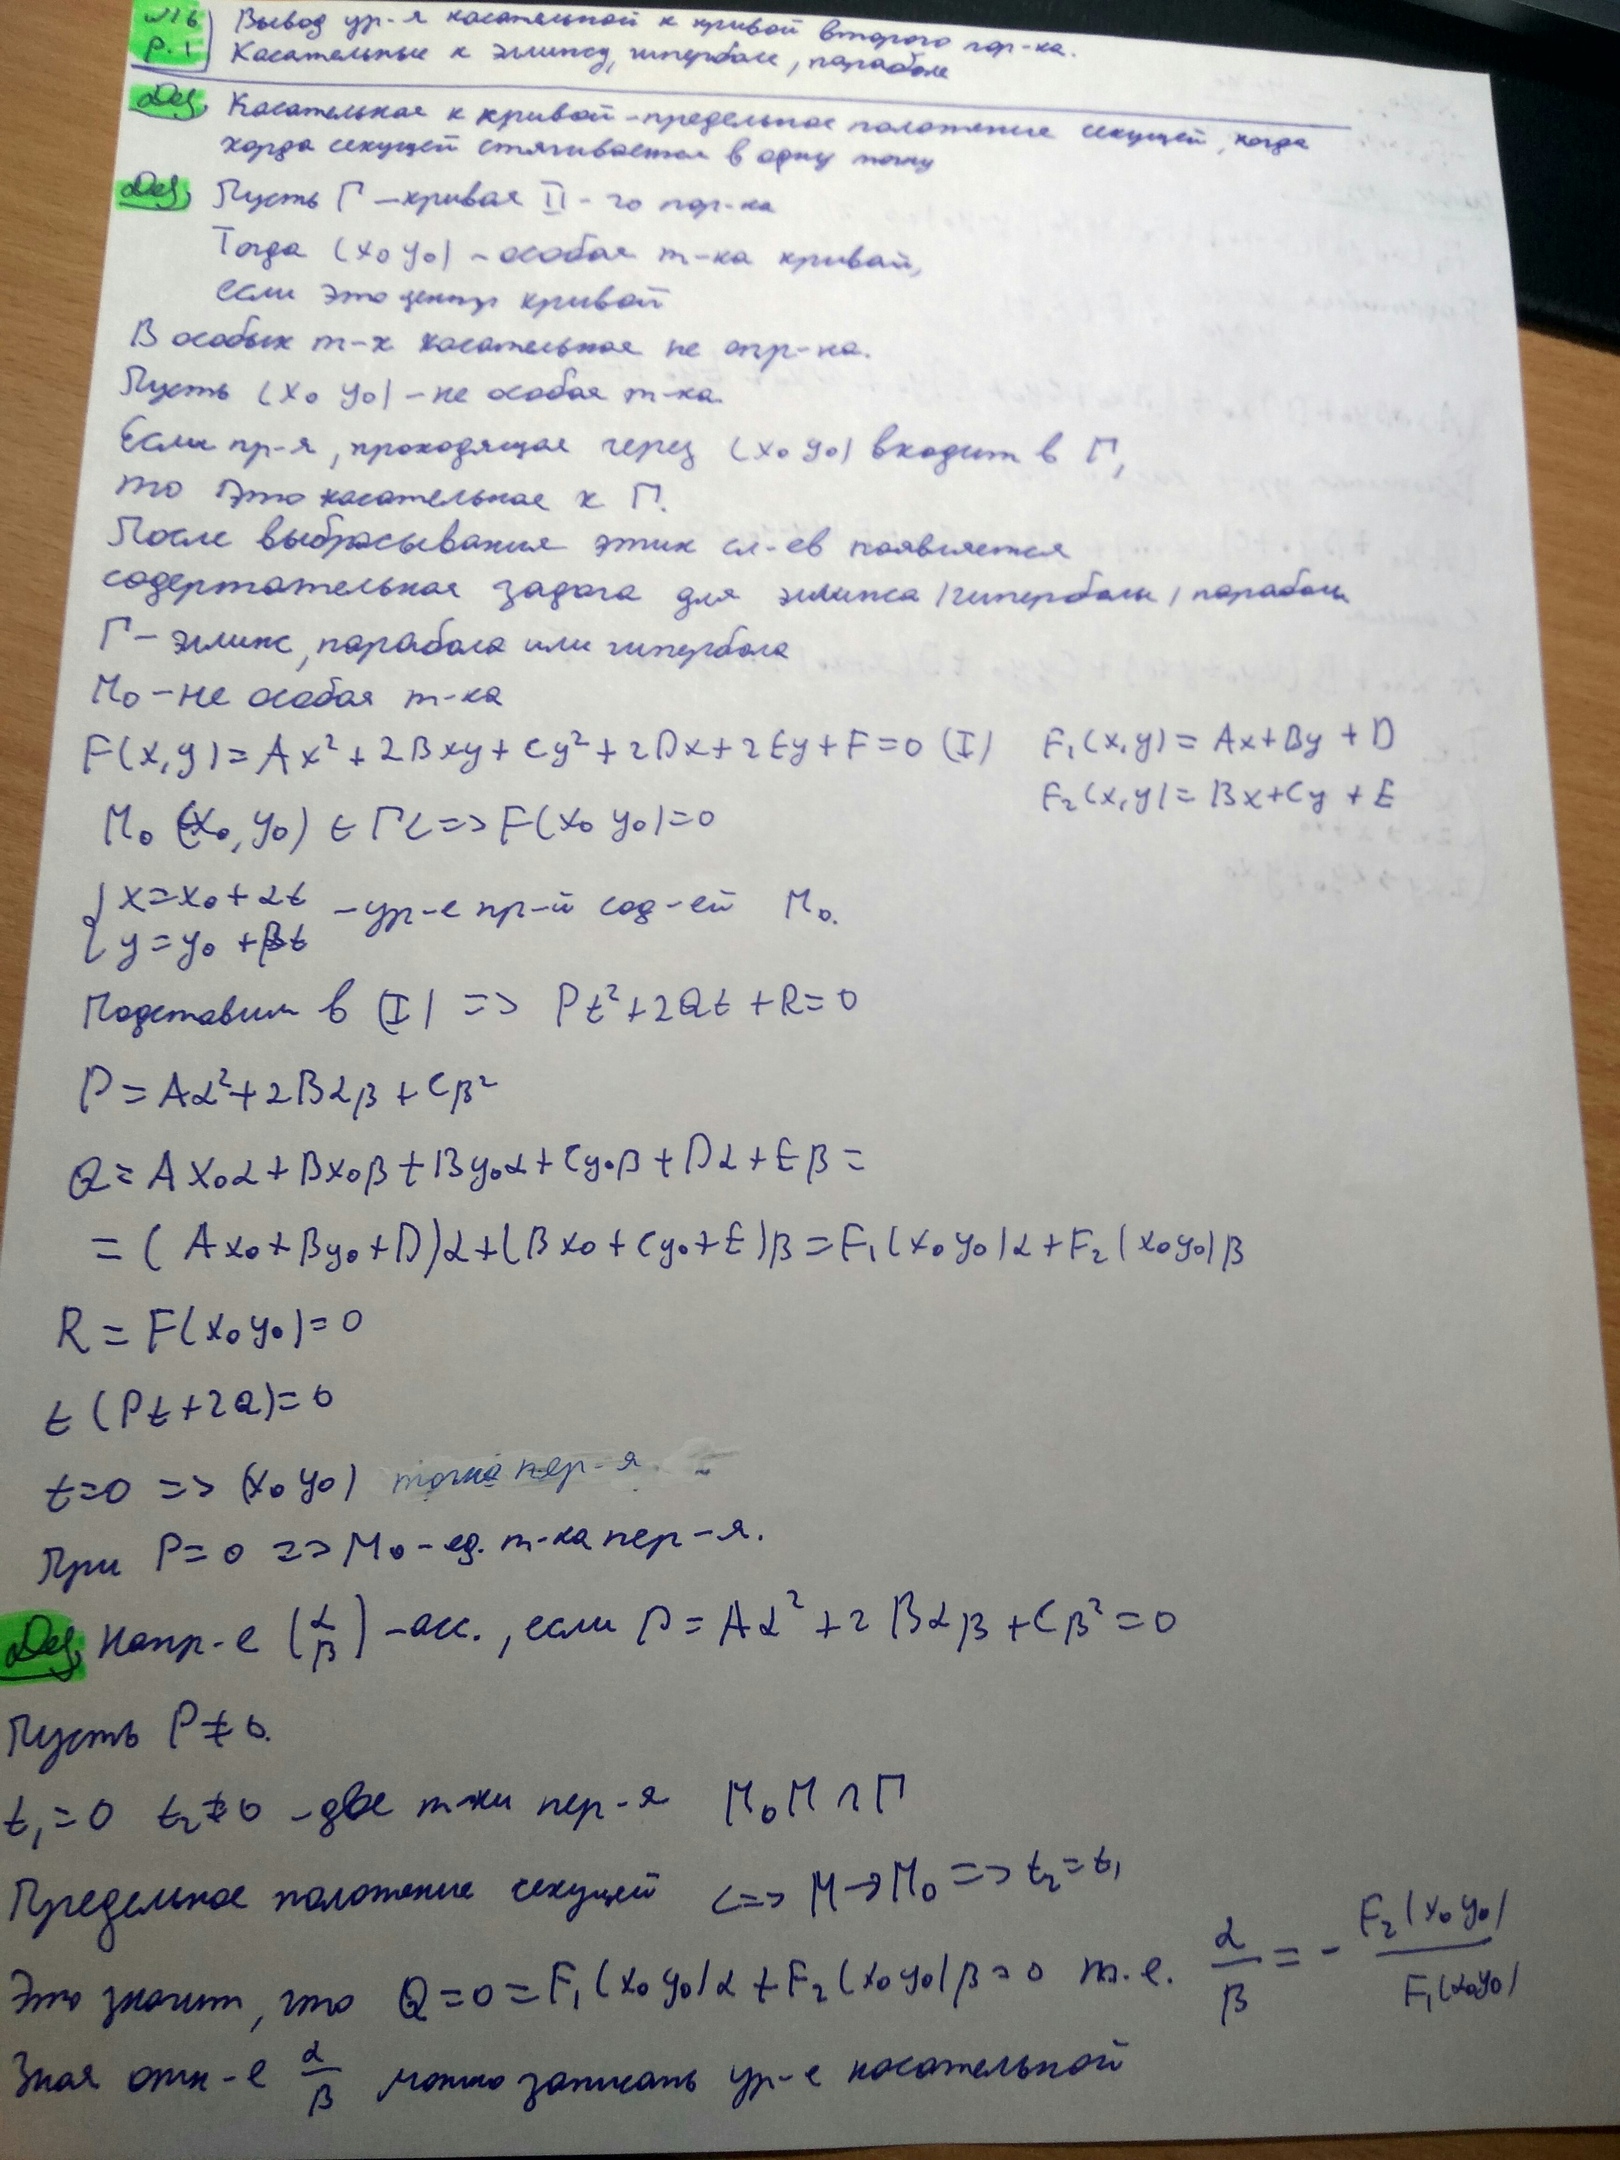 №16 Вывод ур-я касательной к кривой второго пор-ка.
р. 1 Касательные к эллипсу, гиперболе, параболе
Def. Касательная к кривой - предельное положение секущей, когда
хорда секущей стягивается в одну точку
Def. Пусть Г - кривая II-го пор-ка
Тогда (x₀ y₀) - особая т-ка кривой,
если это центр кривой
В особых т-х касательная не опр-на.
Пусть (x₀ y₀) - не особая т-ка.
Если пр-я, проходящая через (x₀ y₀) входит в Г,
то это касательная к Г.
После выбрасывания этих сл-ев появляется
содержательная задача для эллипса/гиперболы/параболы
Г - эллипс, парабола или гипербола
M₀ - не особая т-ка
F(x,y) = Ax² + 2Bxy + Cy² + 2Dx + 2Ey + F = 0 (I) F₁(x,y) = Ax + By + D
F₂(x,y) = Bx + Cy + E
M₀ (x₀, y₀) ∈ Г <=> F(x₀ y₀) = 0
{ x = x₀ + αt
{ y = y₀ + βt - ур-е пр-й сод-ей M₀.
Подставим в (I) => Pt² + 2Qt + R = 0
P = Aα² + 2Bαβ + Cβ²
Q = Ax₀α + Bx₀β + By₀α + Cy₀β + Dα + Eβ =
= (Ax₀ + By₀ + D)α + (Bx₀ + Cy₀ + E)β = F₁(x₀ y₀)α + F₂(x₀ y₀)β
R = F(x₀ y₀) = 0
t (Pt + 2Q) = 0
t = 0 => (x₀ y₀) точка пер-я.
При P = 0 => M₀ - ед. т-ка пер-я.
Def. Напр-е (α β) - ас., если P = Aα² + 2Bαβ + Cβ² = 0
Пусть P ≠ 0.
t₁ = 0 t₂ ≠ 0 - две т-ки пер-я M₀M ∩ Г
Предельное положение секущей <=> M → M₀ => t₂ = t₁
Это значит, что Q = 0 = F₁(x₀ y₀)α + F₂(x₀ y₀)β = 0 т.е. α/β = - F₂(x₀ y₀)/F₁(x₀ y₀)
Зная отн-е α/β можно записать ур-е касательной